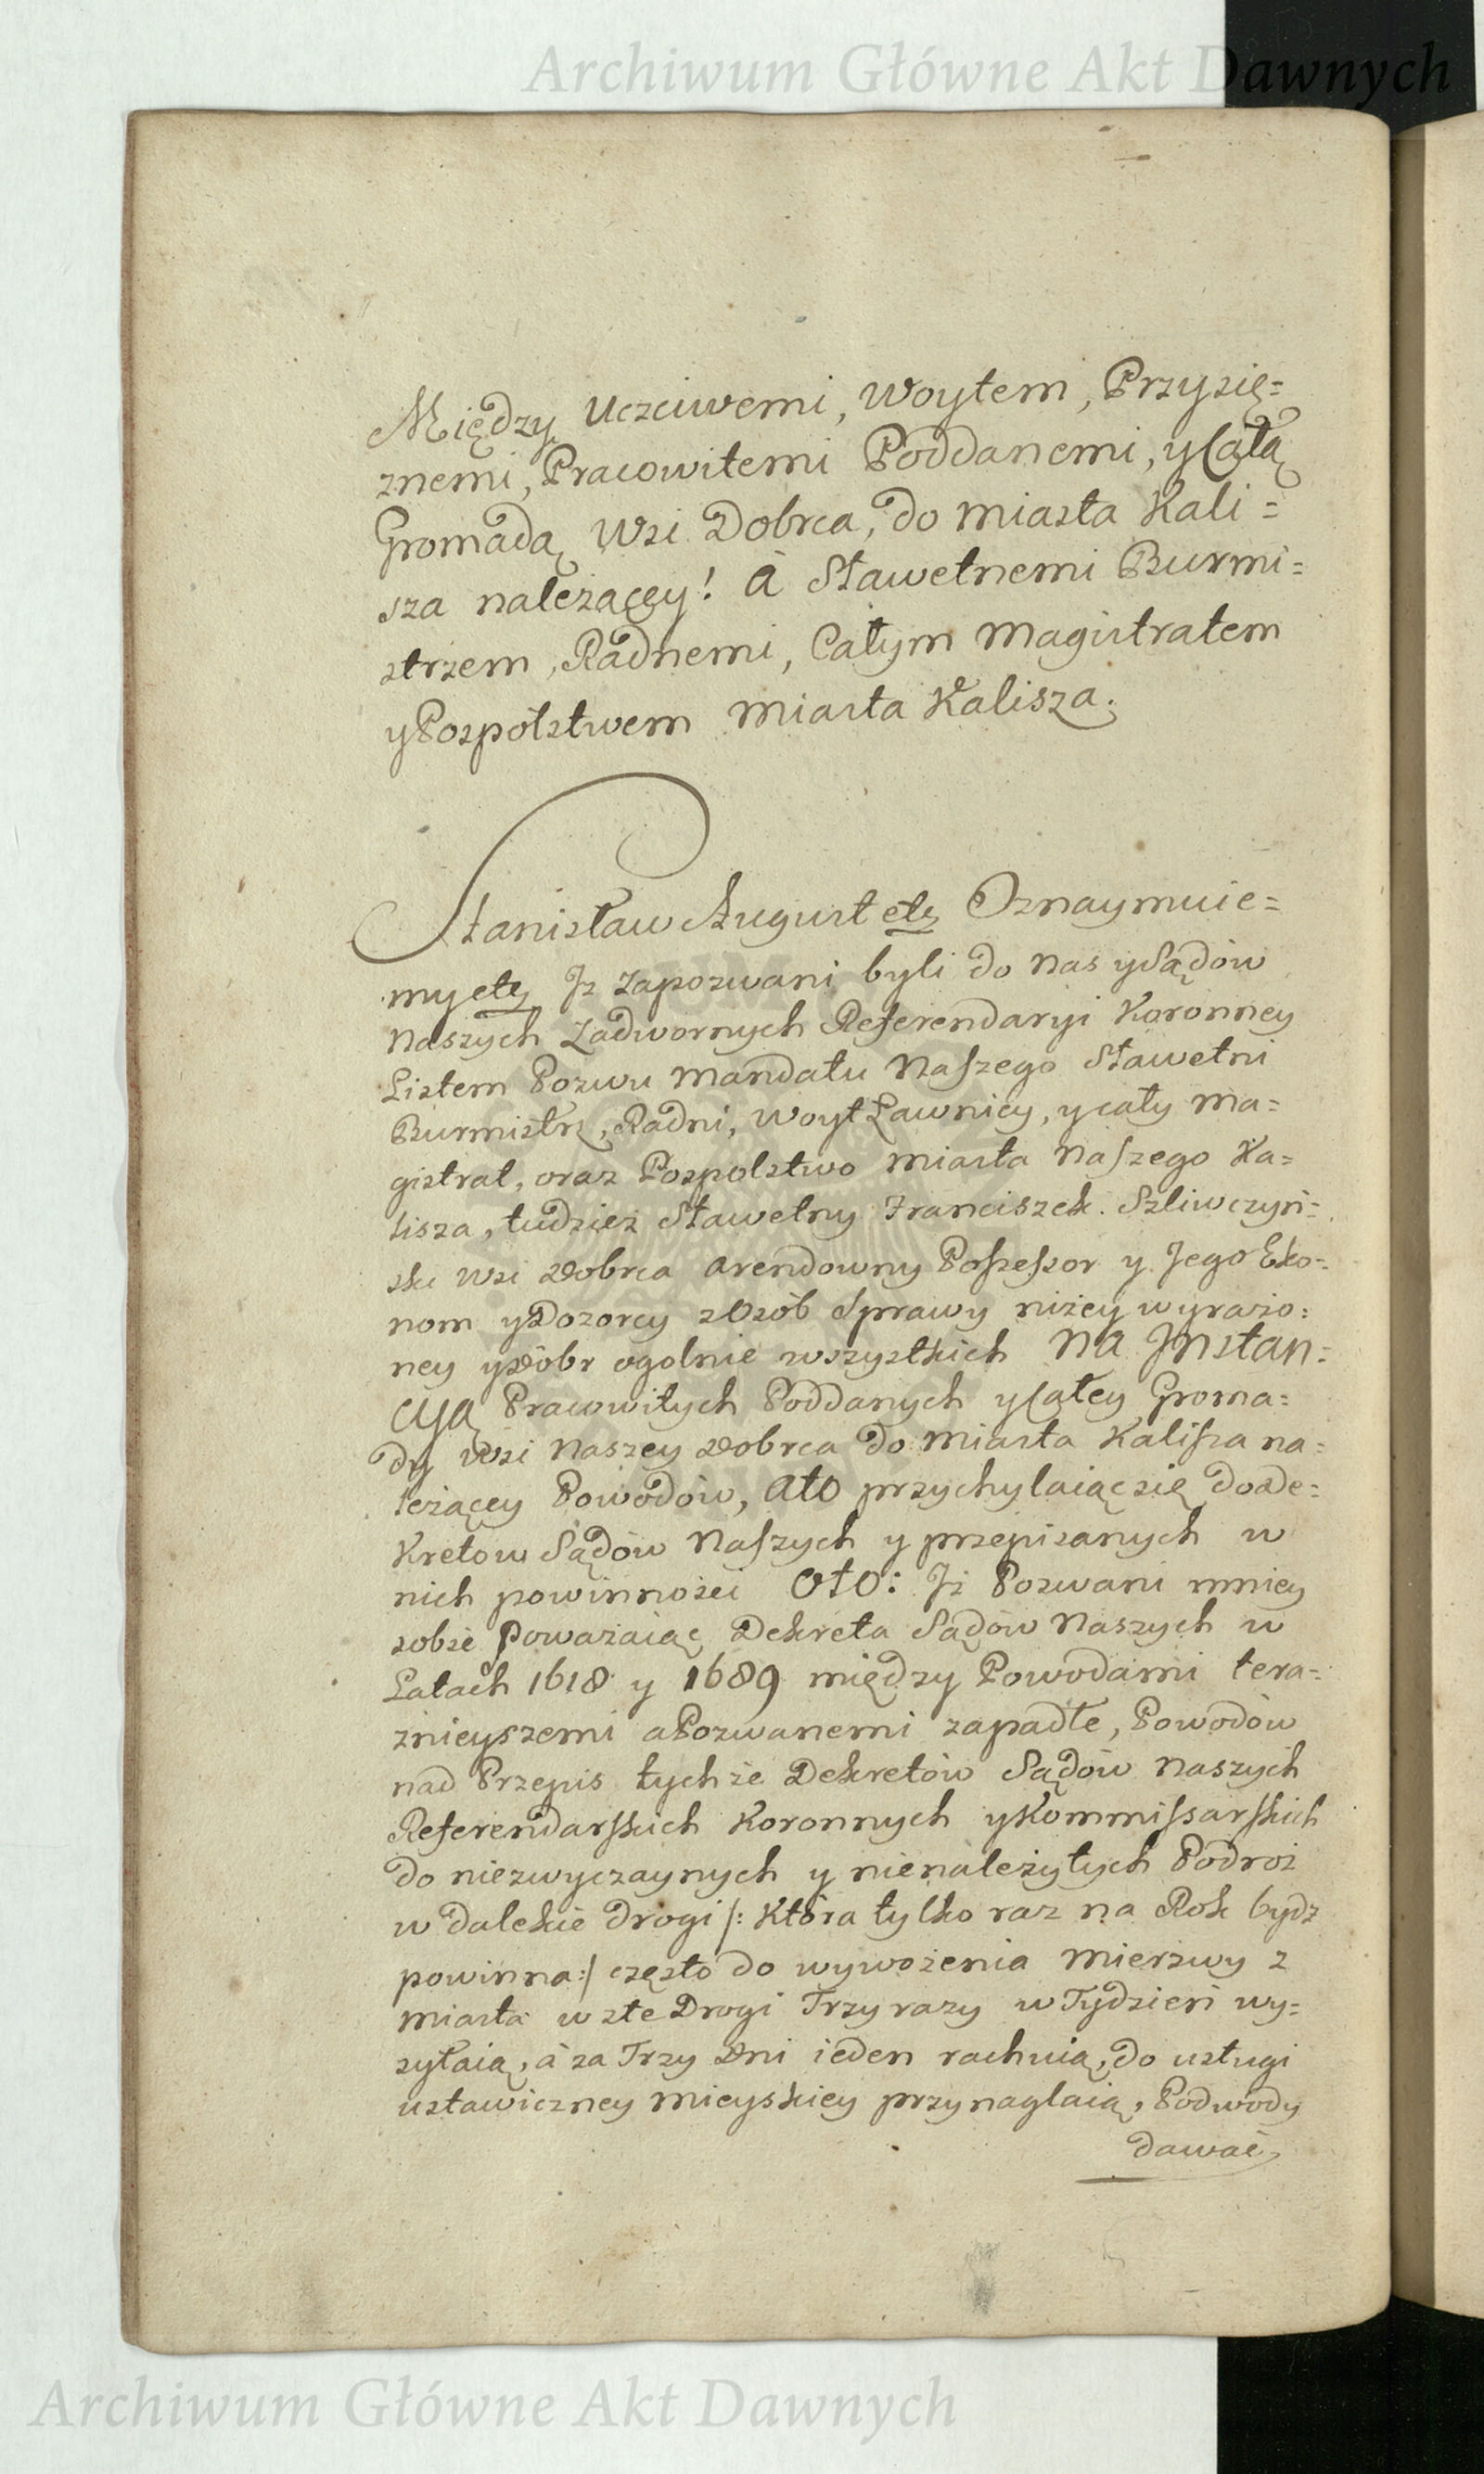 Archiwum Główne Akt Dawnych
Między Uczciwemi, Woytem, Przysię=
znemi, Pracowitemi Poddanemi, y Całą
Gromadą Wsi Dobrca, do Miasta Kali=
sza należącey! à Sławetnemi Burmi=
strzem, Radnemi, Całym Magistratem
y Pospólstwem Miasta Kalisza.
Stanisław August etc Oznaymuie=
my etc Jż Zapozwani byli do Nas y Sądów
Naszych Zadwornych Referendaryi Koronney
Listem Pozwu Mandatu Naszego Sławetni
Burmistrz, Radni, Woyt Ławnicy, y cały Ma=
gistrat, oraz Pospolstwo Miasta Naszego Ka=
lisza, tudzież Sławetny Franciszek Szliwczyń=
ski Wsi Dobrca Arendowny Possessor y Jego Eko=
nom y Dozorcy z Osób Sprawy niżey wyrażo=
ney y Dóbr ogolnie wszystkich Na Jnstan=
cyą Pracowitych Poddanych y Całey Groma=
dy Wsi Naszey Dobrca do Miasta Kalisza na=
leżącey Powodów, Ato przychylaiąc się do De=
kretow Sądów Naszych y przepisanych w
nich powinności Oto: Jż Pozwani mniey
sobie Poważaiąc Dekreta Sądów Naszych w
Latach 1618 y 1689 między Powodami tera=
znieyszemi a Pozwanemi zapadłe, Powodów
nad Przepis tychże Dekretów Sądów Naszych
Referendarskich Koronnych y Kommissarskich
do niezwyczaynych y nienależytych Podroż
w dalekie drogi /: Która tylko raz na Rok bydz
powinna :/ często do wywożenia Mierzwy z
Miasta w złe Drogi Trzy razy w Tydzień wy=
syłaią, à za Trzy Dni ieden rachuią, do usługi
ustawiczney Mieyskiey przynaglaią, Podwody
dawać
Archiwum Główne Akt Dawnych